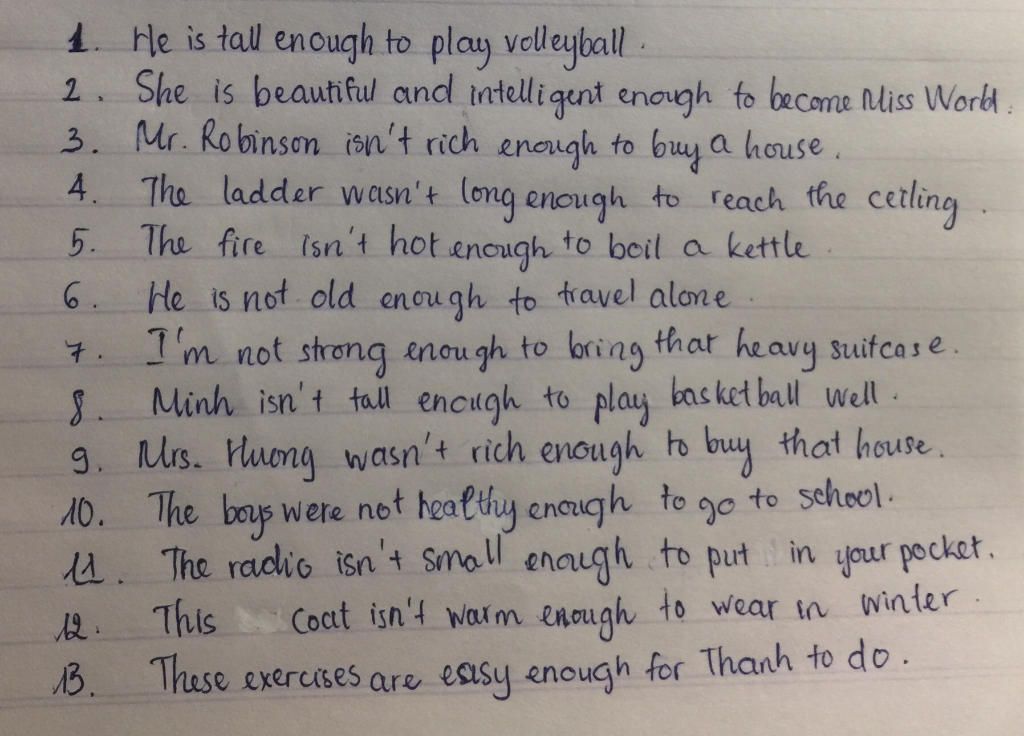 1. He is tall enough to play volleyball.
2. She is beautiful and intelligent enough to become Miss World.
3. Mr. Robinson isn't rich enough to buy a house.
4. The ladder wasn't long enough to reach the ceiling.
5. The fire isn't hot enough to boil a kettle.
6. He is not old enough to travel alone.
7. I'm not strong enough to bring that heavy suitcase.
8. Minh isn't tall enough to play basketball well.
9. Mrs. Huong wasn't rich enough to buy that house.
10. The boys were not healthy enough to go to school.
11. The radio isn't small enough to put in your pocket.
12. This coat isn't warm enough to wear in winter.
13. These exercises are easy enough for Thanh to do.